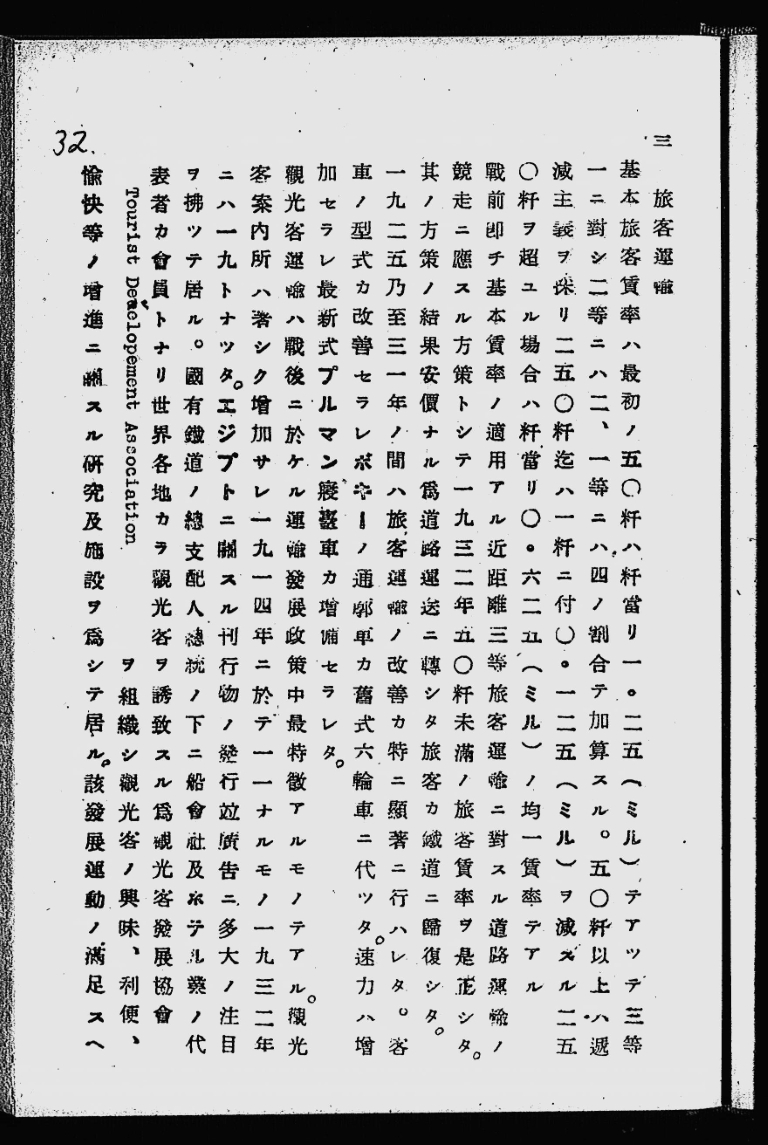 三　旅客運輸
基本旅客賃率ハ最初ノ五〇粁ハ粁當リ一。二五（ミル）テアツテ三等
一ニ對シ二等ニハ二、一等ニハ四ノ割合テ加算スル。五〇粁以上ハ遞
減主義ヲ採リ二五〇粁迄ハ一粁ニ付〇。一二五（ミル）ヲ減スル二五
〇粁ヲ超ユル場合ハ粁當リ〇。六二五（ミル）ノ均一賃率テアル
戰前卽チ基本賃率ノ適用アル近距離三等旅客運輸ニ對スル道路運輸ノ
競走ニ應スル方策トシテ一九三二年五〇粁未滿ノ旅客賃率ヲ是正シタ。
其ノ方策ノ結果安價ナル爲道路運送ニ轉シタ旅客カ鐵道ニ歸復シタ。
一九二五乃至三一年ノ間ハ旅客運輸ノ改善カ特ニ顯著ニ行ハレタ。客
車ノ型式カ改善セラレボギーノ通廓車カ舊式六輪車ニ代ツタ。速力ハ增
加セラレ最新式プルマン寢臺車カ增備セラレタ。
觀光客運輸ハ戰後ニ於ケル運輸發展政策中最特徵アルモノテアル。觀光
客案內所ハ著シク增加サレ一九一四年ニ於テ一一ナルモノ一九三二年
ニハ一九トナツタ。エジプトニ關スル刊行物ノ發行竝廣告ニ多大ノ注目
ヲ拂ツテ居ル。國有鐵道ノ總支配人總統ノ下ニ船會社及ホテル業ノ代
表者カ會員トナリ世界各地カラ觀光客ヲ誘致スル爲觀光客發展協會
Tourist Deaelopement Association ヲ組織シ觀光客ノ興味、利便、
愉快等ノ增進ニ關スル硏究及施設ヲ爲シテ居ル。該發展運動ノ滿足スヘ
32.